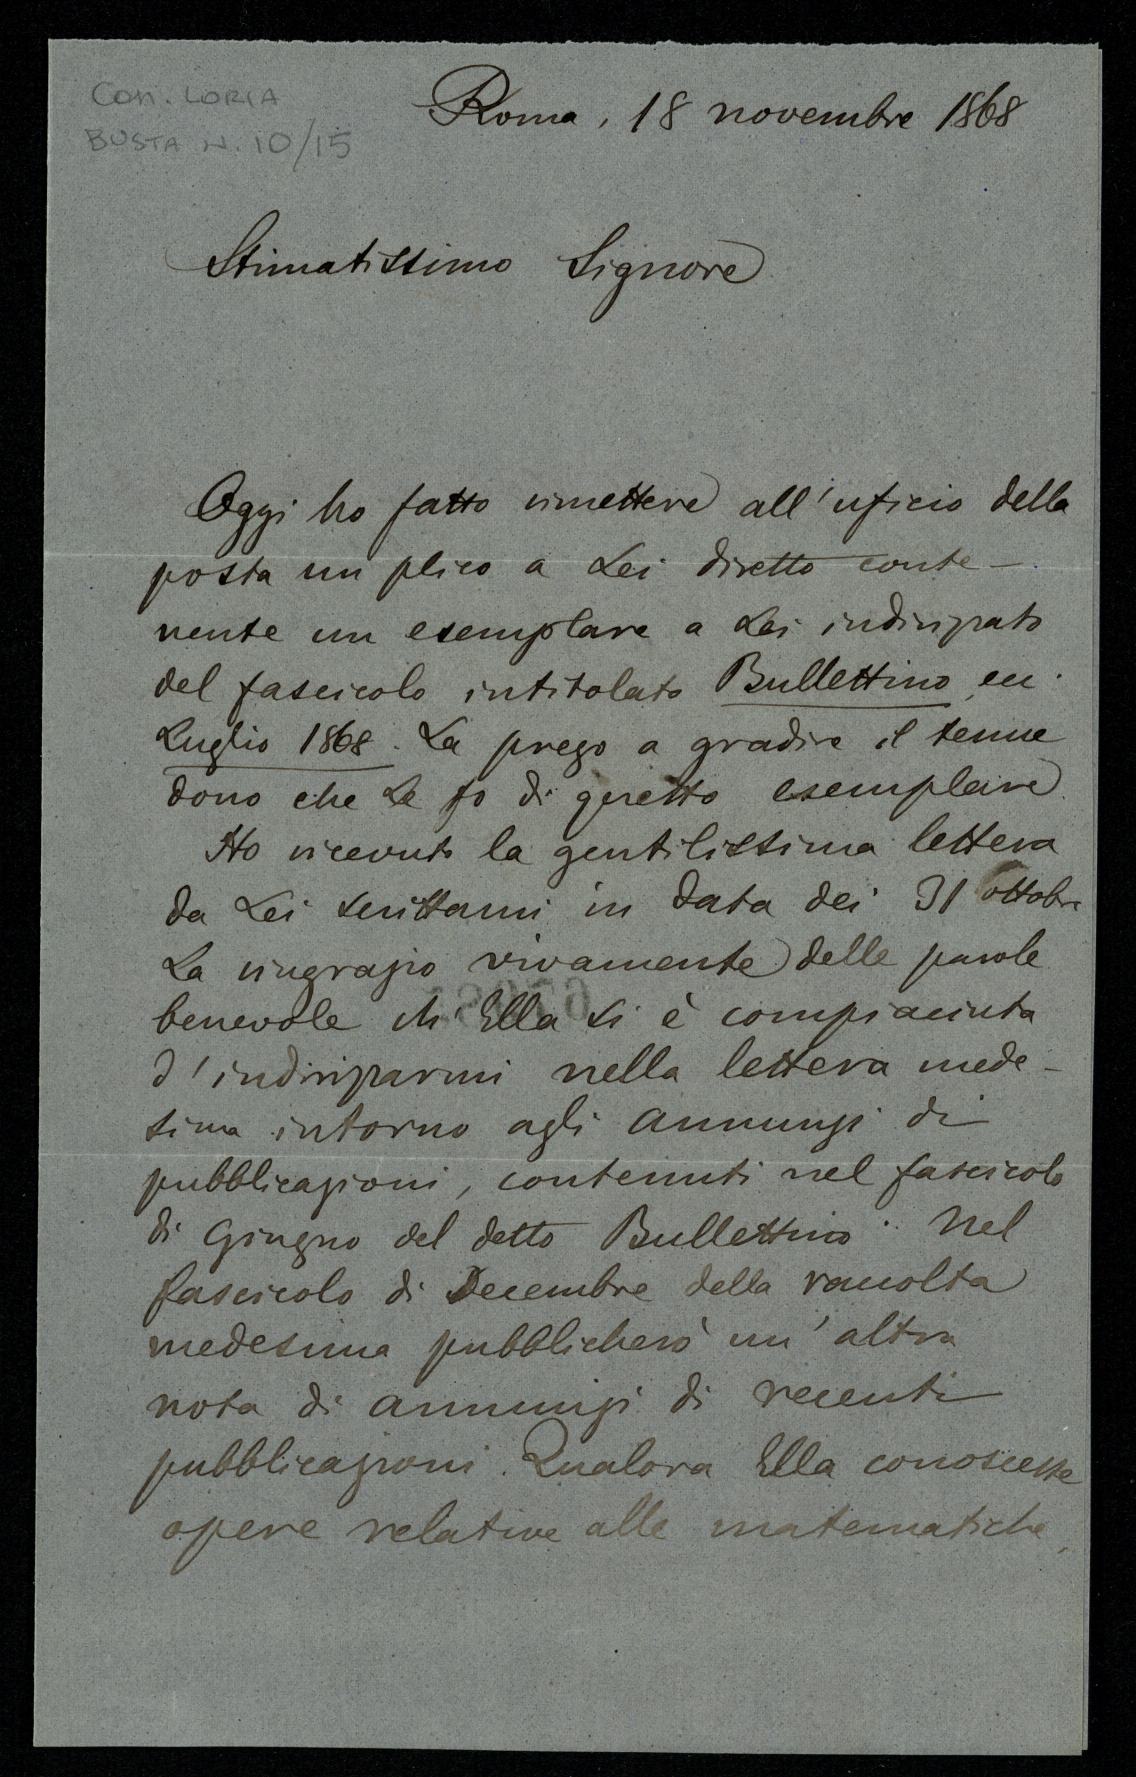 Con. LORIA
BUSTA N. 10/15
Roma, 18 novembre 1868
Stimatissimo Signore
Oggi ho fatto rimettere all'uficio della
posta un plico a Lei diretto conte-
nente un esemplare a Lei indirizzato
del fascicolo intitolato Bullettino, ec.
Luglio 1868. La prego a gradire il tenue
dono che Le fo di questo esemplare
Ho ricevuto la gentilissima lettera
da Lei scrittami in data dei 31 ottobre
La ringrazio vivamente delle parole
benevole ch' Ella si è compiaciuta
d'indirizzarmi nella lettera mede-
sima intorno agli annunzi di
pubblicazioni, contenuti nel fascicolo
di Giugno del detto Bullettino. Nel
fascicolo di Decembre della raccolta
medesima pubblicherò un'altra
nota di annunzi di recenti
pubblicazioni. Qualora Ella conoscesse
opere relative alle matematiche,